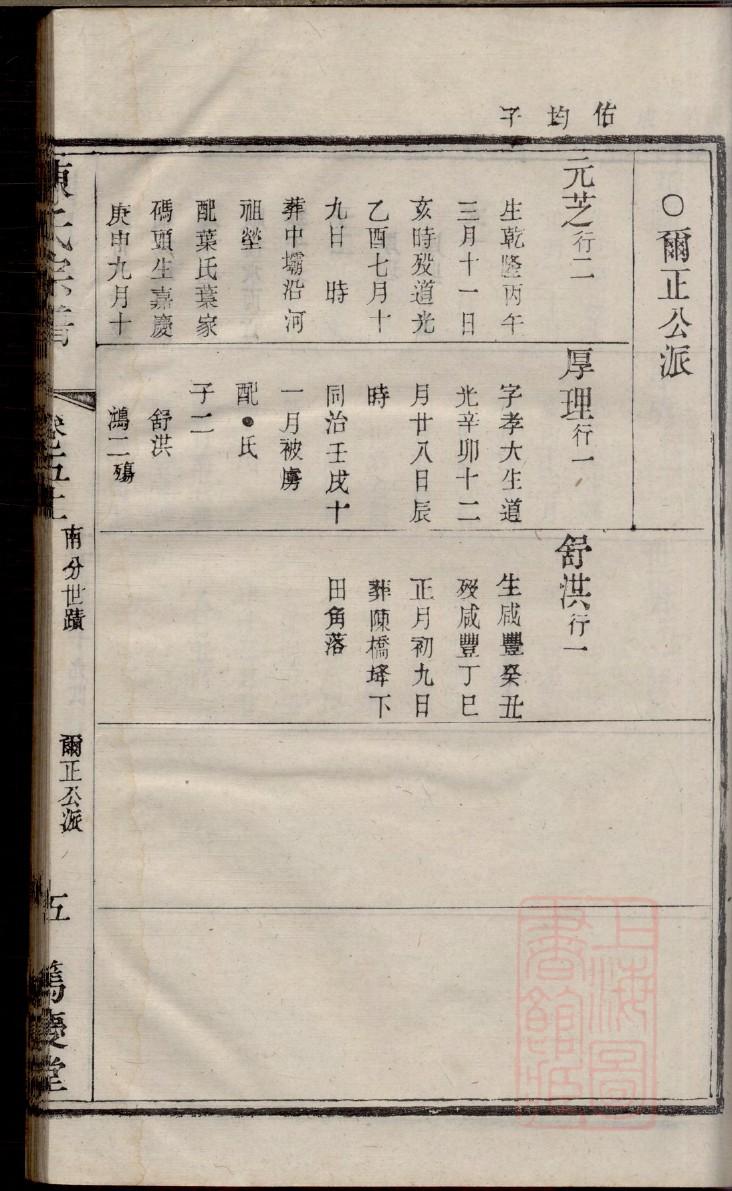 佑均子
○爾正公派
元芝行二
生乾隆丙午
三月十一日
亥時歿道光
乙酉七月十
九日　時
葬中壩沿河
祖塋
配葉氏葉家
碼頭生嘉慶
庚申九月十
厚理行一
字孝大生道
光辛卯十二
月廿八日辰
時
同治壬戌十
一月被虜
配●氏
子二
舒洪
鴻二殤
舒洪行一
生咸豐癸丑
歿咸豐丁巳
正月初九日
葬陳橋埄下
田角落
陳氏宗譜
卷五上
南分世蹟
爾正公派
五
篤慶堂
上海圖
書館藏